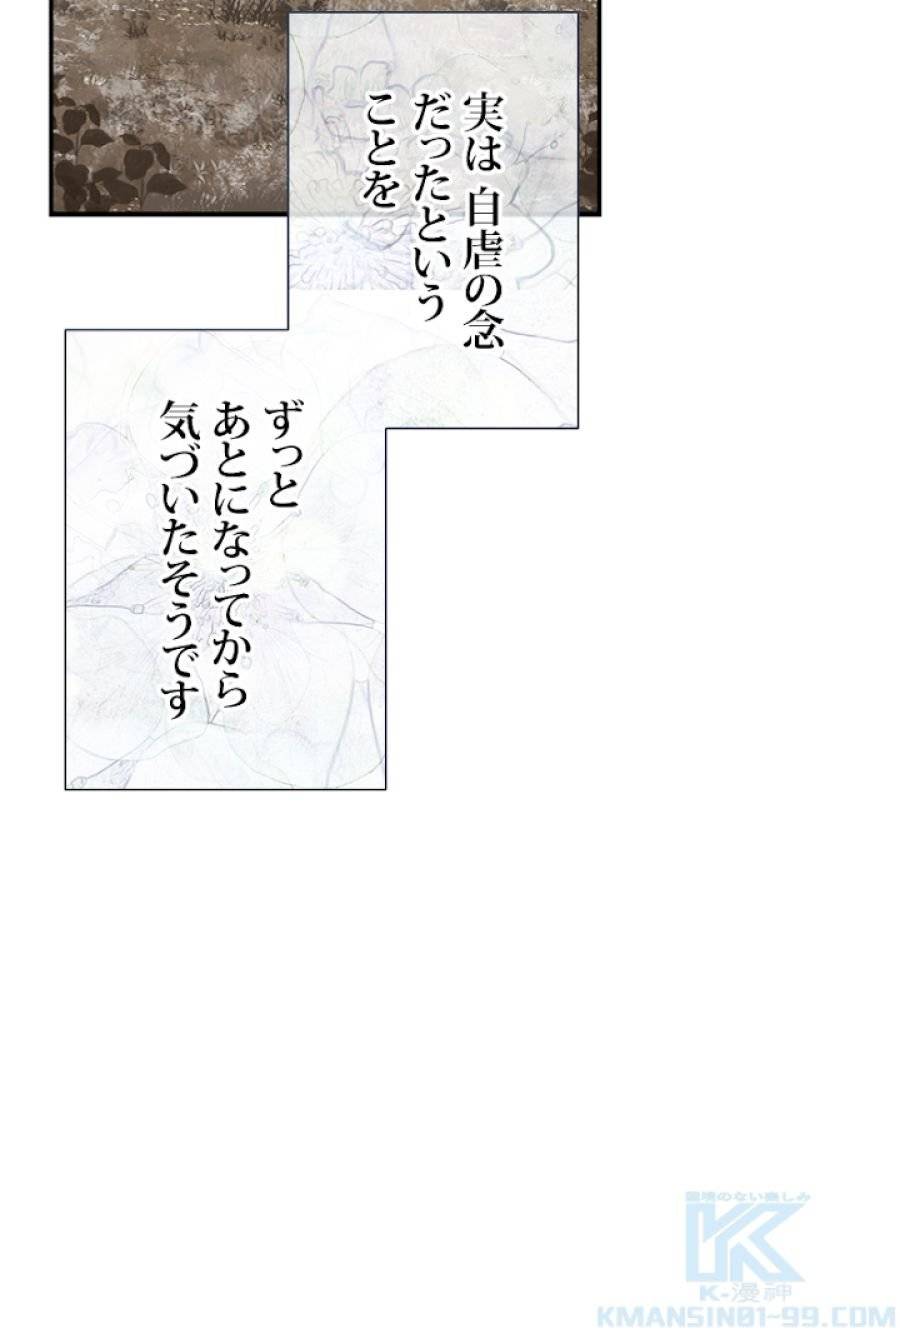 実は 自虐の念
だったという
ことを
ずっと
あとになってから
気づいたそうです
K-漫神
KMANSIN01-99.COM